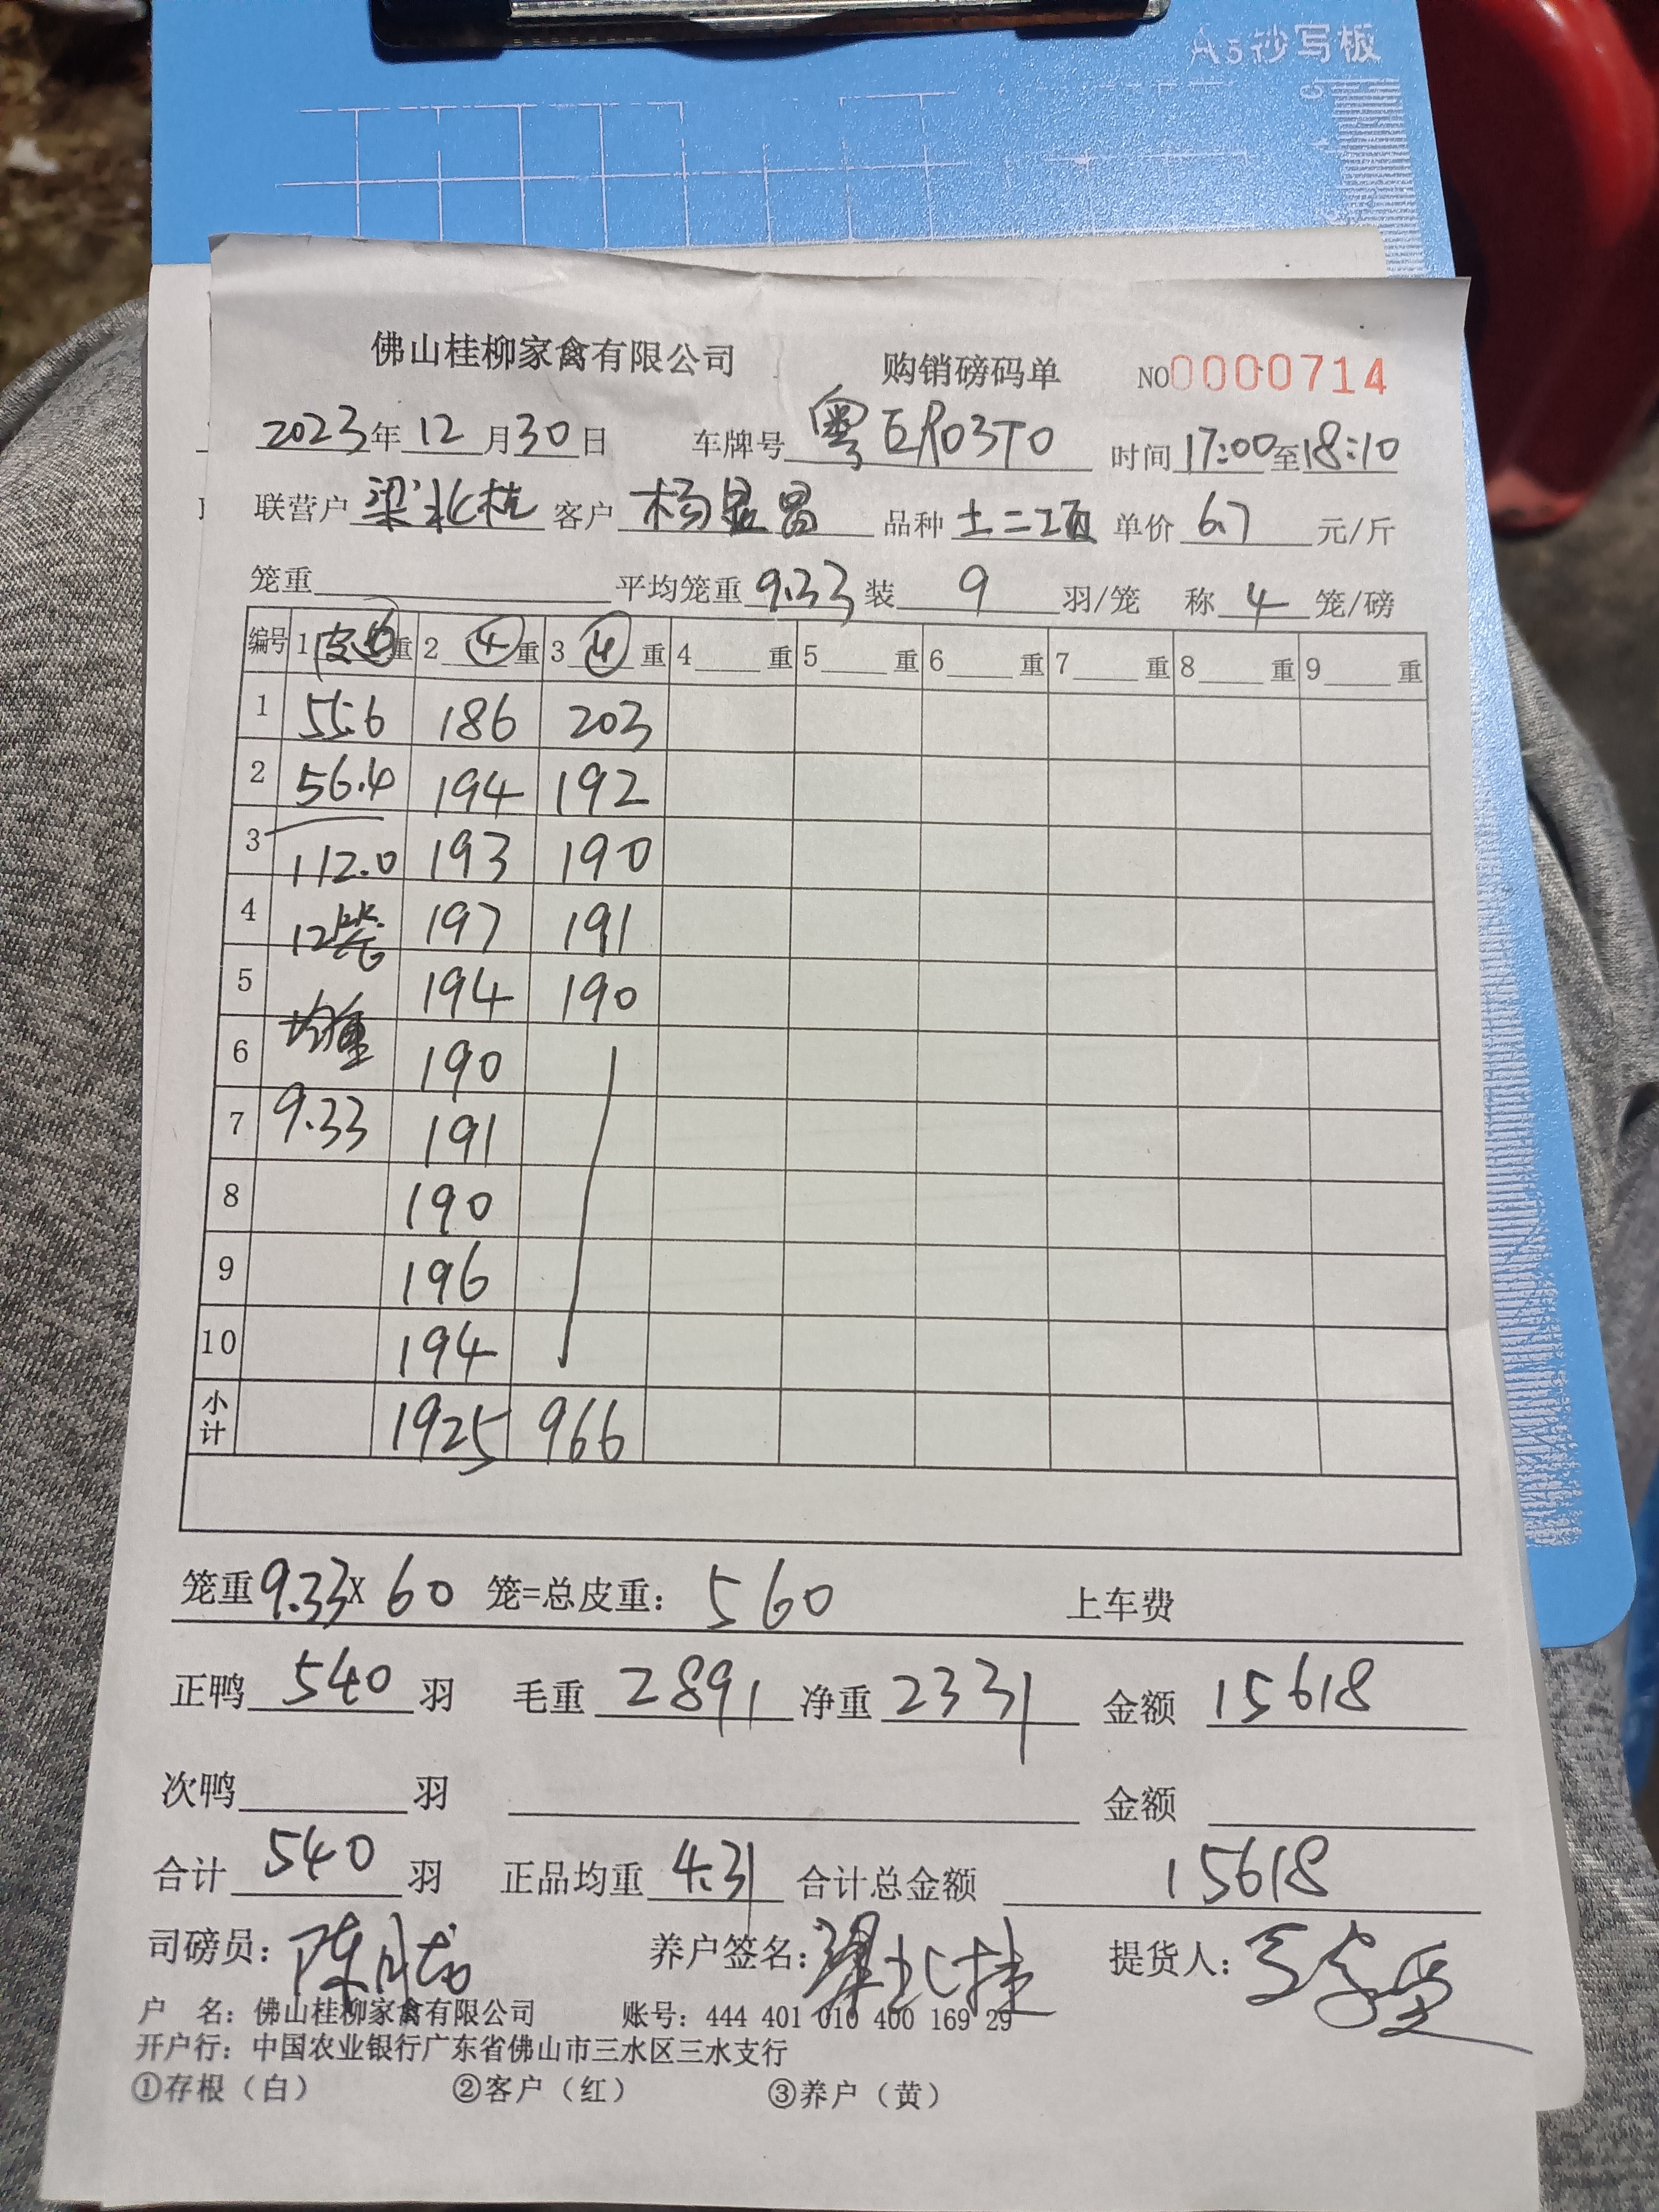 A5抄写板
佛山桂柳家禽有限公司 购销磅码单 NO0000714
2023年12月30日 车牌号粤ER03T0 时间17:00至18:10
联营户梁北桂 客户杨显昌 品种土二项 单价6.7元/斤
笼重 平均笼重9.33装9羽/笼 称4笼/磅
编号 1皮⑥重 2④重 3④重 4重 5重 6重 7重 8重 9重
1 55.6 186 203
2 56.4 194 192
3 112.0 193 190
4 12笼 197 191
5 194 190
6 均重 190
7 9.33 191
8 190
9 196
10 194
小计 1925 966
笼重9.33X60笼=总皮重：560 上车费
正鸭540羽 毛重2891净重2331 金额15618
次鸭 羽 金额
合计540羽 正品均重4.31合计总金额15618
司磅员：陈 养户签名：梁北桂 提货人：
户 名：佛山桂柳家禽有限公司 账号：444 401 010 400 169 29
开户行：中国农业银行广东省佛山市三水区三水支行
①存根（白） ②客户（红） ③养户（黄）